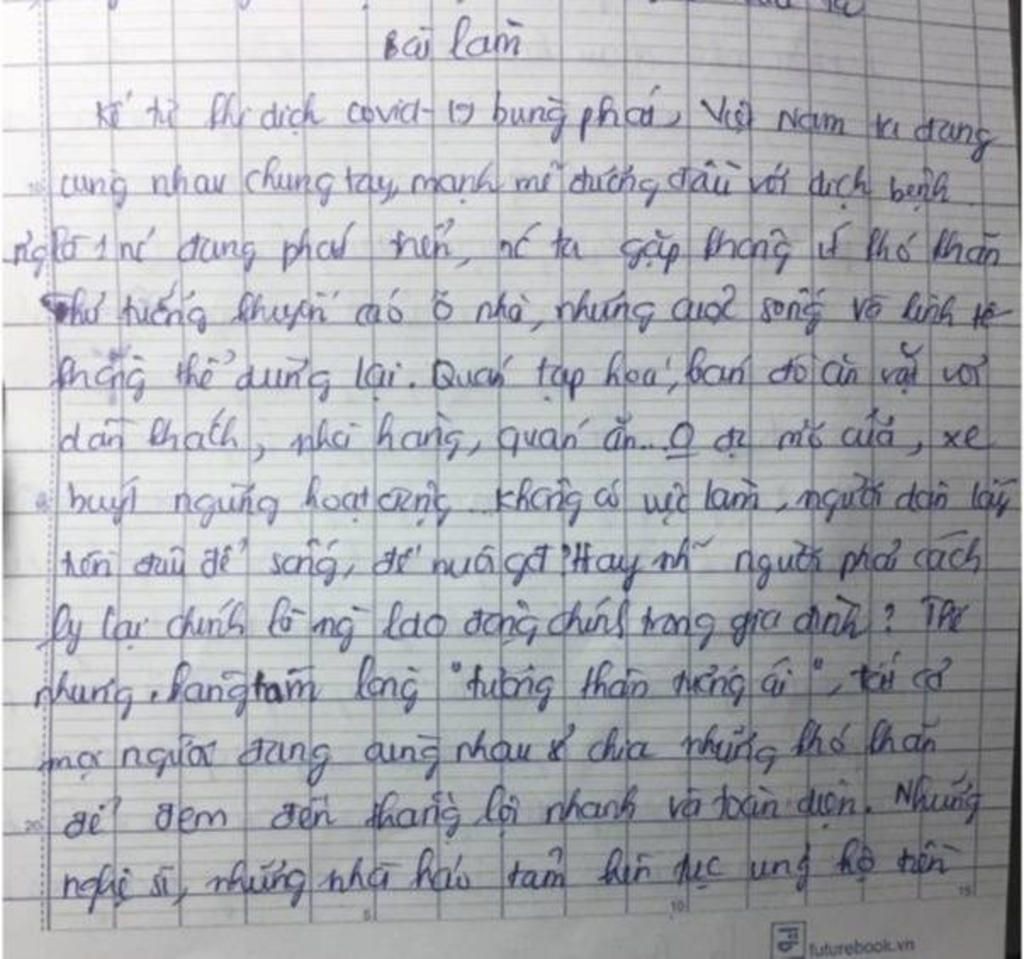 Bài làm
Kể từ khi dịch covid-19 bùng phát, Việt Nam ta đang
cùng nhau chung tay, mạnh mẽ đương đầu với dịch bệnh.
Là 1 nc đang phát triển, nc ta gặp không ít khó khăn
Thủ tướng khuyến cáo ở nhà, nhưng cuộc sống và kinh tế
không thể dừng lại. Quán tạp hoá, bán đồ ăn vặt với
dân thành, nhà hàng, quán ăn... 0 đc mở cửa, xe
buýt ngừng hoạt động. Không có việc làm, người dân lấy
tiền đâu để sống, để nuôi gđ? Hay nh~ người phải cách
ly lại chính là ng lao động chính trong gia đình? Thế
nhưng, bằng tấm lòng "tương thân tương ái", tất cả
mọi người đang cùng nhau chia những khó khăn
để đem đến thắng lợi nhanh và toàn diện. Những
nghệ sĩ, những nhà hảo tâm liên tục ủng hộ tiền
5
10
15
20
futurebook.vn